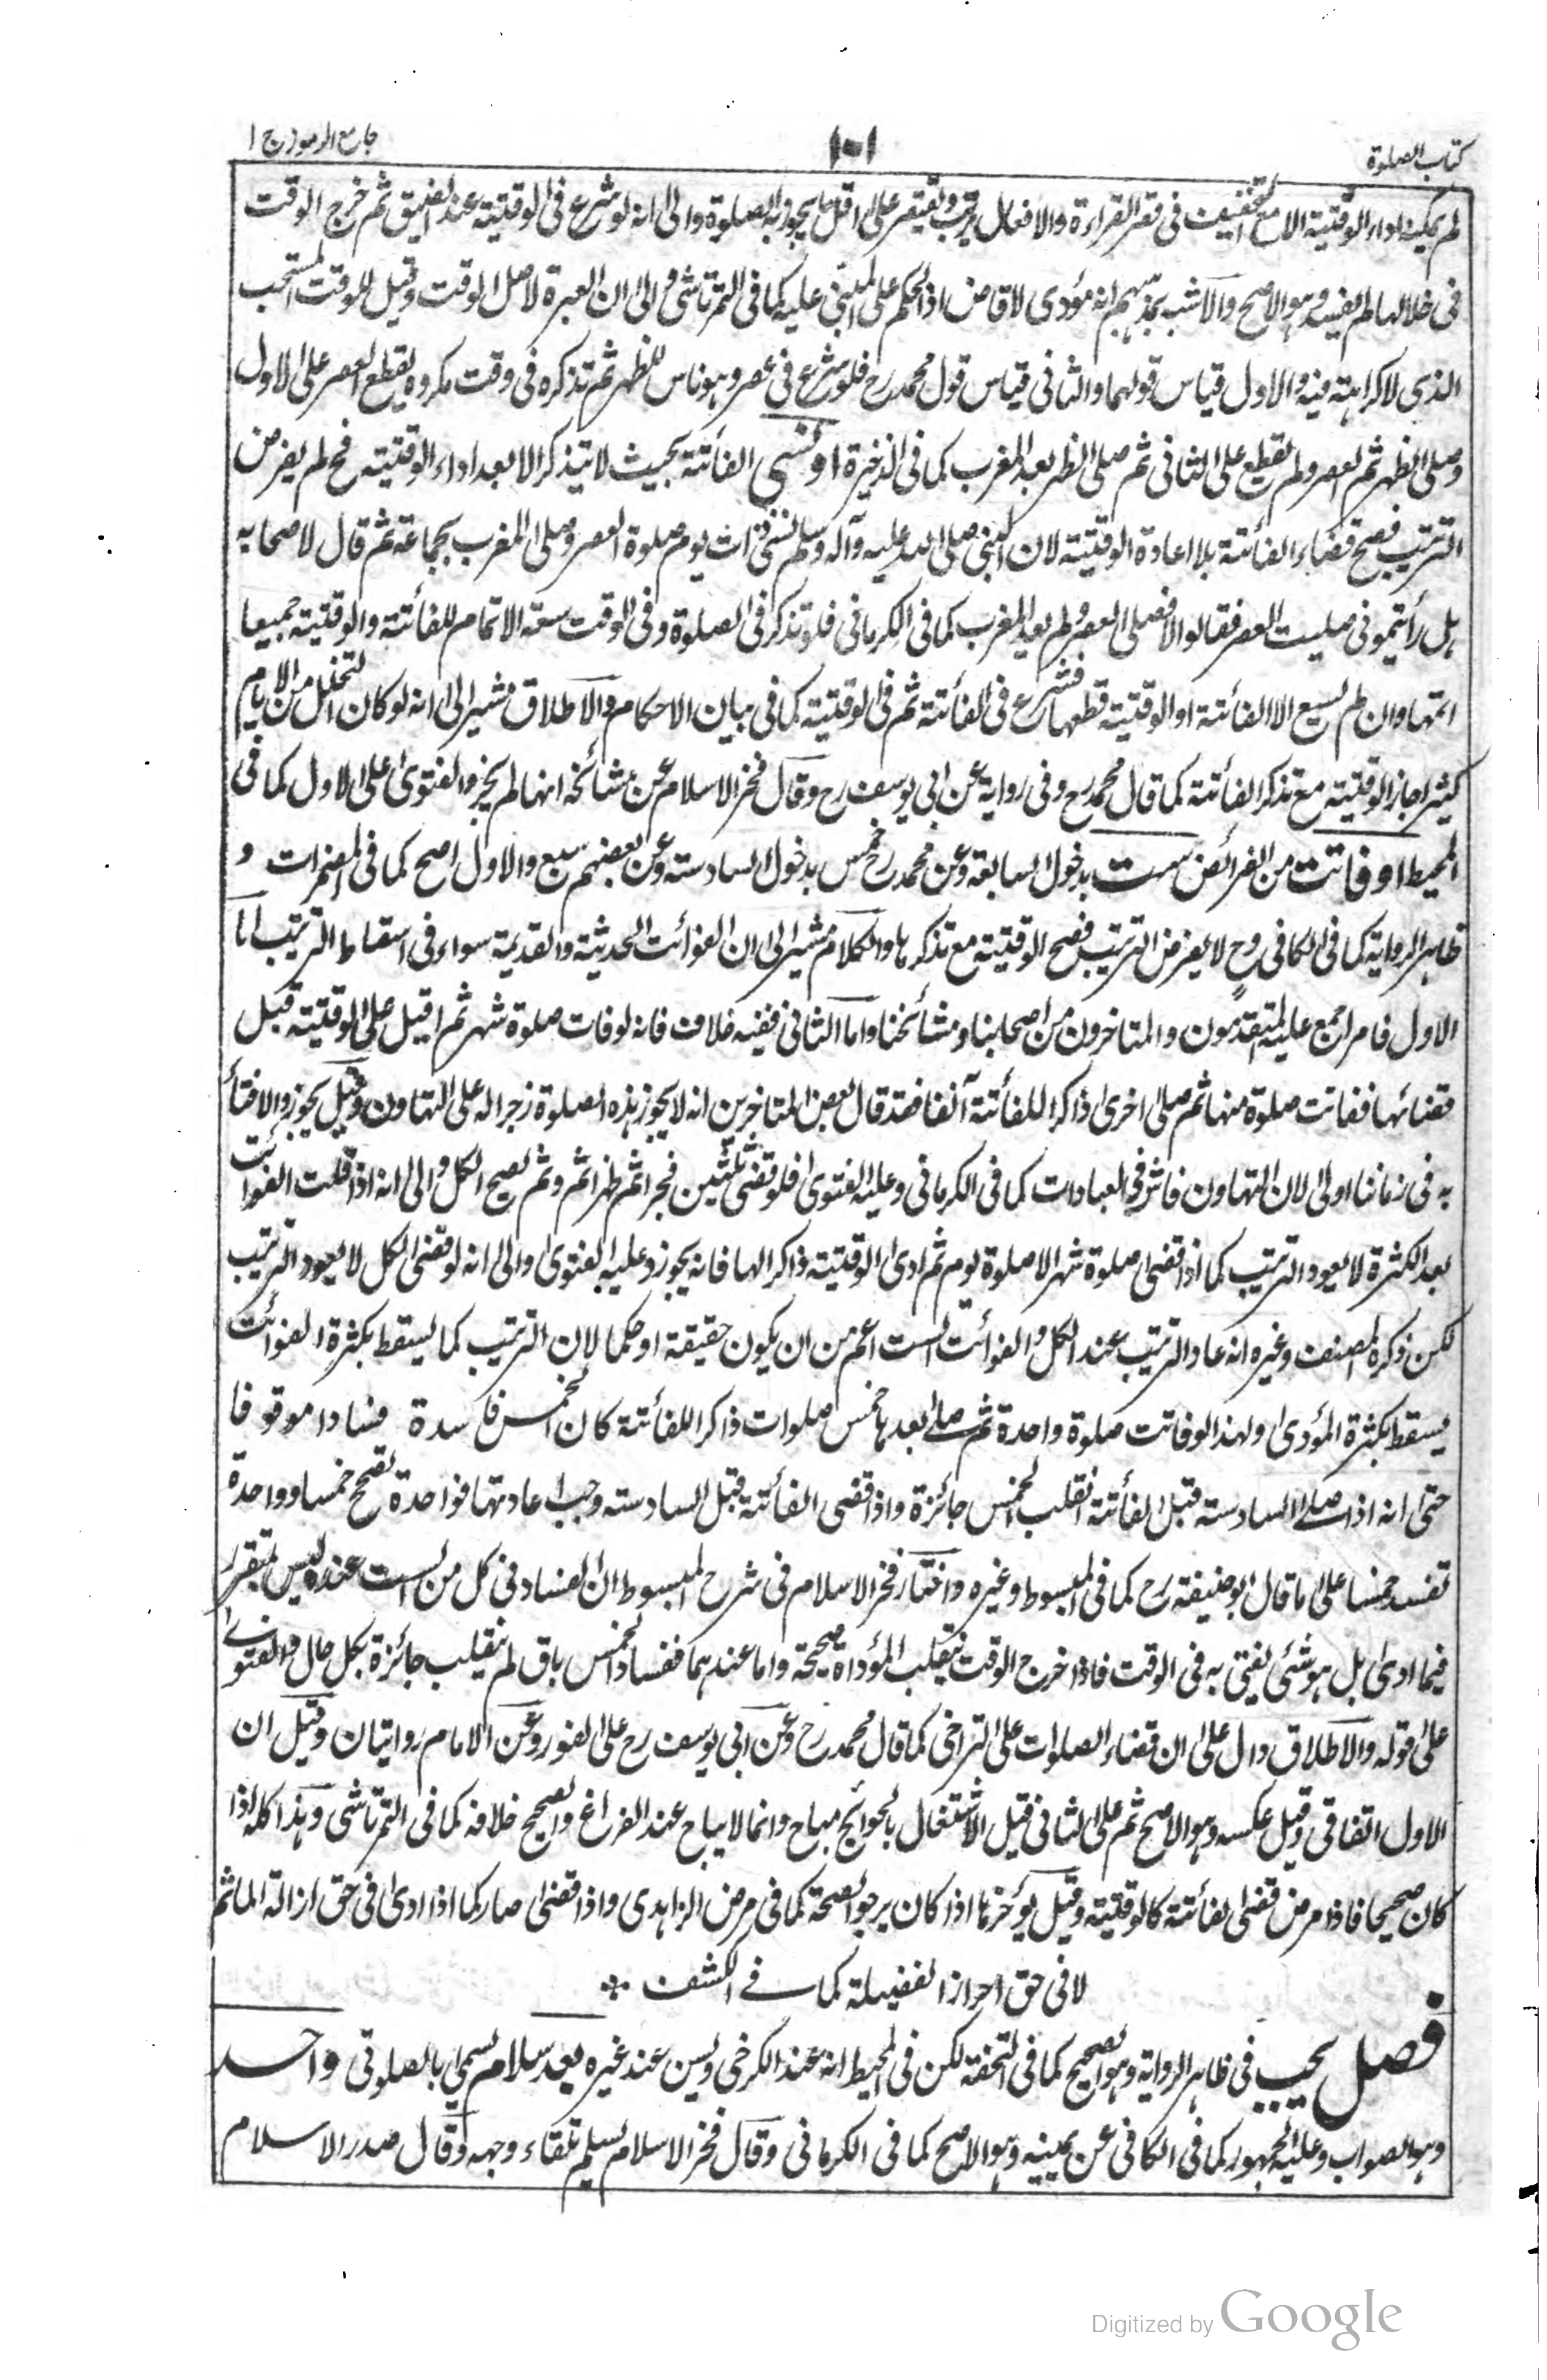 كتاب الصلوة
١٠١
جامع الرموز ج ا
لم يمكنه اداء الوقتية الا مع التخفيف فى قصر القراءة والافعال يرتب ويقتصر على اقل ما يجوز به الصلوة والى انه لو شرع فى الوقتية عند الضيق ثم خرج الوقت
فى خلالها لم يفسد وهو الاصح والاشبه بمذهبهم انه مؤدى لا قاض اذ الحكم على المبنى عليه كما فى التمرتاشى والى ان العبرة لاصل الوقت وقيل للوقت المستحب
الذى لا كراهة فيه والاول قياس قولهما والثانى قياس قول محمد رح فلو شرع فى عصر وهو ناس للظهر ثم تذكره فى وقت مكروه يقطع العصر على الاول
وصلى الظهر ثم العصر ولم يقطع على الثانى ثم صلى الظهر بعد المغرب كما فى الذخيرة او نسي الفائتة بحيث لا يتذكر الا بعد اداء الوقتية فح لم يفرض
الترتيب فصح قضاء الفائتة بلا اعادة الوقتية لان النبى صلى الله عليه وآله وسلم نسى ذات يوم صلوة العصر وصلى المغرب بجماعة ثم قال لاصحابه
هل رأيتمونى صليت العصر فقالوا لا فصلى العصر ولم يعد المغرب كما فى الكرمانى فلو تذكر فى الصلوة وفى الوقت سعة الاتمام للفائتة والوقتية جميعا
اتمها وان لم يسع الا الفائتة او الوقتية قطعها فشرع فى الفائتة ثم فى الوقتية كما فى بيان الاحكام والاطلاق مشير الى انه لو كان التخلل من الايام
كثيرا جاز الوقتية مع تذكر الفائتة كما قال محمد رح وفى رواية عن ابى يوسف رح وقال فخر الاسلام عن مشائخه انها لم يجز والفتوى على الاول كما فى
المحيط او فاتت من الفرائض ست بدخول السابعة وعن محمد رح خمس بدخول السادسة وعن بعضهم سبع والاول اصح كما فى المضمرات و
ظاهر الرواية كما فى الكافى وح لا يفرض الترتيب فصح الوقتية مع تذكرها والكلام مشير الى ان الفوائت الحديثة والقديمة سواء فى اسقاط الترتيب اما
الاول فامر اجمع عليه المتقدمون والمتاخرون من اصحابنا ومشائخنا واما الثانى ففيه خلاف فانه لو فات صلوة شهر ثم اقبل على الوقتية قبل
قضائها ففاتت صلوة منها ثم صلى اخرى ذاكرا للفائتة آنفا فقد قال بعض المتاخرين انه لا يجوز هذه الصلوة زجرا له على التهاون وقيل يجوز والافتاء
به فى زماننا اولى لان التهاون فاش فى العبادات كما فى الكرمانى وعليه الفتوى فلو قضى ثلثين فجرا ثم ظهرا ثم وثم لصح الكل والى انه اذا قلت الفوائت
بعد الكثرة لا يعود الترتيب كما اذا قضى صلوة شهر الا صلوة يوم ثم ادى الوقتية ذاكرا لها فانه يجوز وعليه الفتوى والى انه لو قضى الكل لا يعود الترتيب
لكن ذكره المصنف وغيره انه عاد الترتيب عند الكل والفوائت الست اعم من ان يكون حقيقة او حكما لان الترتيب كما يسقط بكثرة الفوائت
يسقط بكثرة المؤدى ولهذا لو فاتت صلوة واحدة ثم صلى بعدها خمس صلوات ذاكرا للفائتة كان الخمس فاسدة فسادا موقوفا
حتى انه اذا صلى السادسة قبل الفائتة انقلب الخمس جائزة واذا قضى الفائتة قبل السادسة وجب اعادتها فواحدة تصحح خمسا وواحدة
تفسد خمسا على ما قال ابو حنيفة رح كما فى المبسوط وغيره واختار فخر الاسلام فى شرح المبسوط ان الفساد فى كل من الست عنده ليس بمتقرر
فيما ادى بل هو شئ يفتى به فى الوقت فاذا خرج الوقت ينقلب المؤداة صحيحة واما عندهما ففساد الخمس باق لم ينقلب جائزة بكل حال والفتوى
على قوله والاطلاق دال على ان قضاء الصلوات على التراخى كما قال محمد رح وعن ابى يوسف رح على الفور وعن الامام روايتان وقيل ان
الاول اتفاقى وقيل عكسه وهو الاصح ثم على الثانى قيل الاشتغال بالحوائج مباح وانما لا يباح عند الفراغ والصحيح خلافه كما فى التمرتاشى وهذا كله اذا
كان صحيحا فاذا مرض قضى الفائتة كالوقتية وقيل يؤخرها اذا كان يرجو الصحة كما فى مرض الزاهدى واذا قضى صار كما اذا ادى فى حق ازالة الماثم
لا فى حق احراز الفضيلة كما فى الكشف
فصل يجب فى ظاهر الرواية وهو الصحيح كما فى التحفة لكن فى المحيط انه عند الكرخى ويسن عند غيره بعد سلام يسمى بالصلوتى واحد
وهو الصواب وعليه الجمهور كما فى الكافى عن يمينه وهو الاصح كما فى الكرمانى وقال فخر الاسلام يسلم تلقاء وجهه وقال صدر الاسلام
Digitized by Google